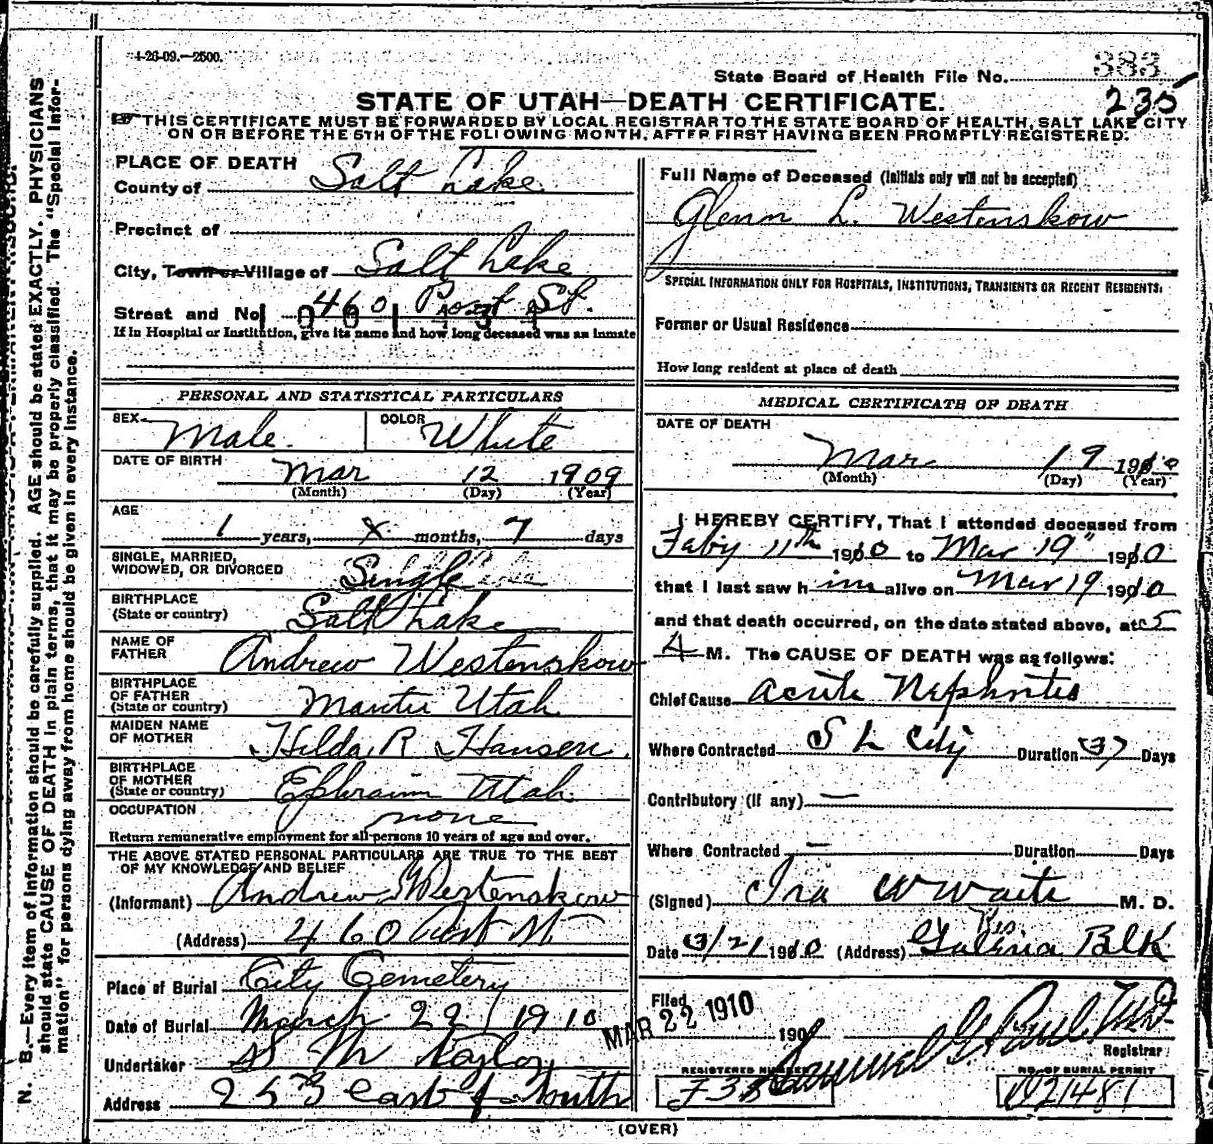 4-26-09.—2500.
State Board of Health File No. 383
235
STATE OF UTAH—DEATH CERTIFICATE.
THIS CERTIFICATE MUST BE FORWARDED BY LOCAL REGISTRAR TO THE STATE BOARD OF HEALTH, SALT LAKE CITY
ON OR BEFORE THE 5TH OF THE FOLLOWING MONTH, AFTER FIRST HAVING BEEN PROMPTLY REGISTERED.
PLACE OF DEATH
County of Salt Lake
Precinct of
City, Town or Village of Salt Lake
Street and No. 460 Post St.
If in Hospital or Institution, give its name and how long deceased was an inmate
Full Name of Deceased (Initials only will not be accepted)
Glenn L. Westenskow
SPECIAL INFORMATION ONLY FOR HOSPITALS, INSTITUTIONS, TRANSIENTS OR RECENT RESIDENTS:
Former or Usual Residence
How long resident at place of death
PERSONAL AND STATISTICAL PARTICULARS
SEX Male. COLOR White
DATE OF BIRTH Mar 12 1909
(Month) (Day) (Year)
AGE
1 years, x months, 7 days
SINGLE, MARRIED,
WIDOWED, OR DIVORCED Single
BIRTHPLACE
(State or country) Salt Lake
NAME OF
FATHER Andrew Westenskow
BIRTHPLACE
OF FATHER
(State or country) Manti Utah
MAIDEN NAME
OF MOTHER Hilda R Hansen.
BIRTHPLACE
OF MOTHER
(State or country) Ephraim Utah
OCCUPATION none
Return remunerative employment for all persons 10 years of age and over.
THE ABOVE STATED PERSONAL PARTICULARS ARE TRUE TO THE BEST
OF MY KNOWLEDGE AND BELIEF
(Informant) Andrew Westenskow
(Address) 460 Post St
Place of Burial City Cemetery
Date of Burial March 22 1910
Undertaker S M Taylor
Address 253 East 1 South
MEDICAL CERTIFICATE OF DEATH
DATE OF DEATH
Mar 19 1910
(Month) (Day) (Year)
I HEREBY CERTIFY, That I attended deceased from
Feby 11th 1910 to Mar 19" 1910
that I last saw him alive on Mar 19 1910
and that death occurred, on the date stated above, at 5
A M. The CAUSE OF DEATH was as follows:
Chief Cause Acute Nephritis
Where Contracted S L City Duration 37 Days
Contributory (if any) —
Where Contracted — Duration Days
(Signed) Ira W Waite M. D.
Date 3/21 1910 (Address) Galena Blk
Filed MAR 22 1910 190
Samuel G Paul M.D.
Registrar
REGISTERED NUMBER
F33
NO. OF BURIAL PERMIT
D21481
(OVER)
N. B.—Every item of information should be carefully supplied. AGE should be stated EXACTLY. PHYSICIANS
should state CAUSE OF DEATH in plain terms, that it may be properly classified. The "Special Infor-
mation" for persons dying away from home should be given in every instance.